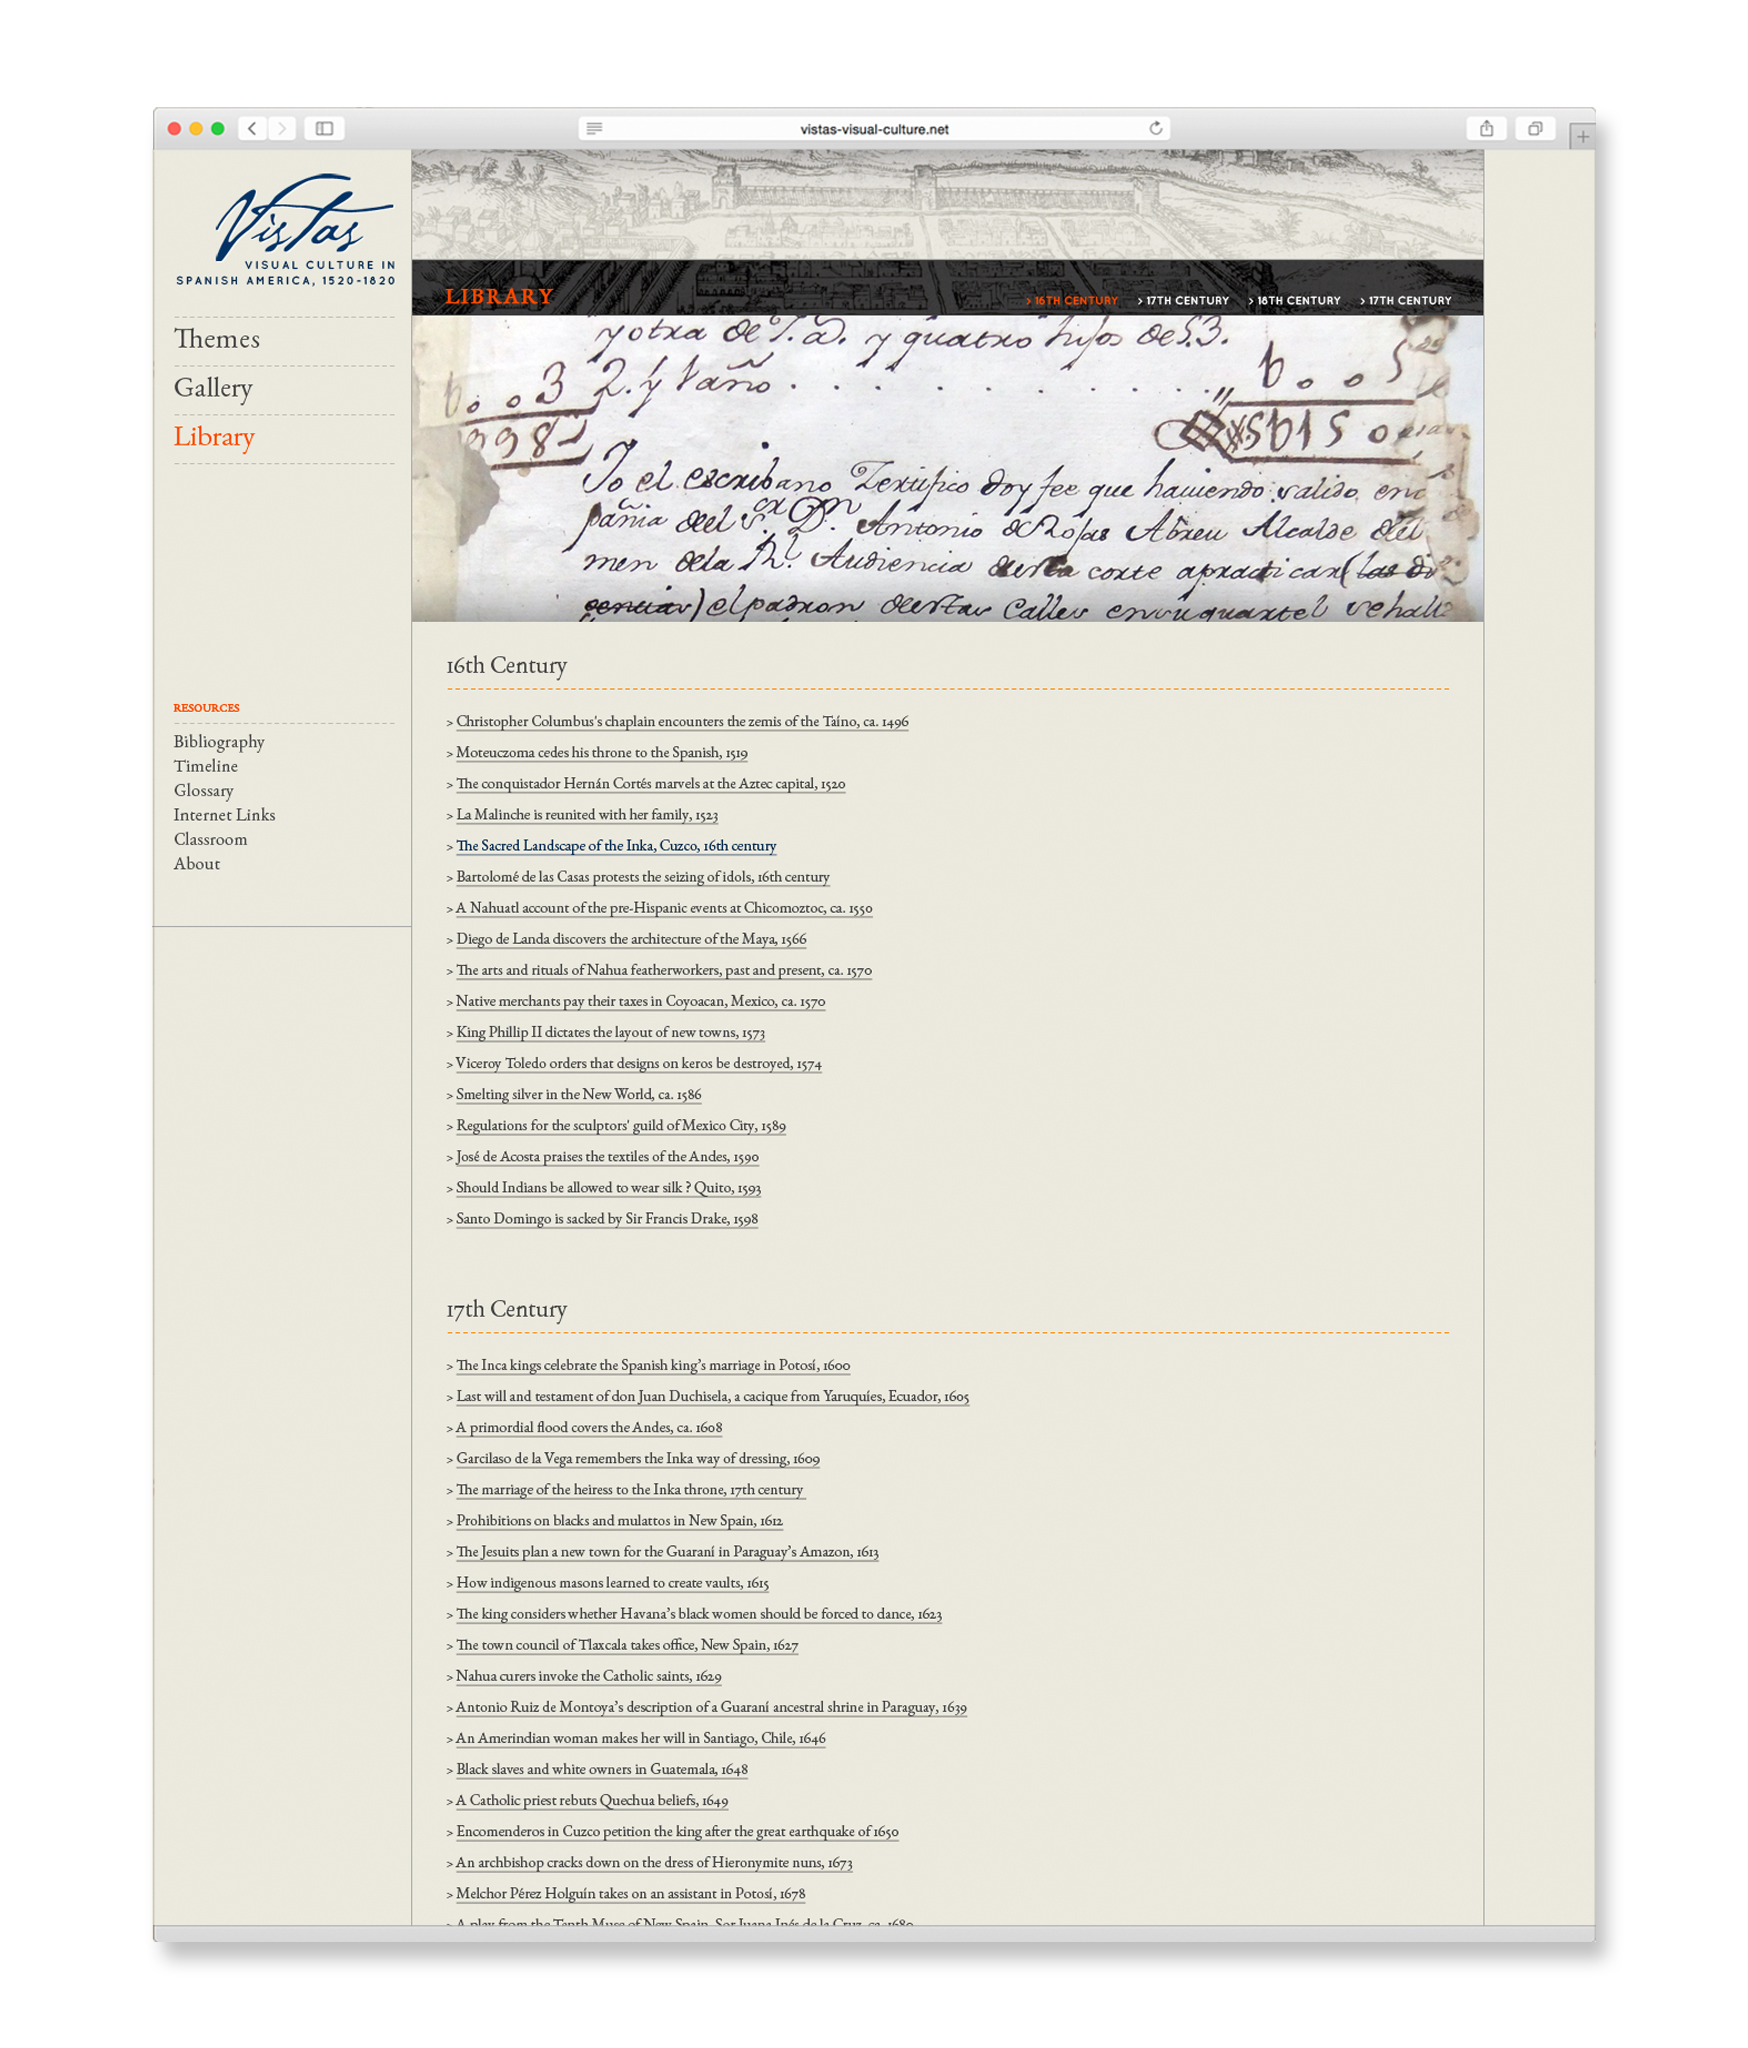 vistas-visual-culture.net
Vistas
VISUAL CULTURE IN
SPANISH AMERICA, 1520-1820
Themes
Gallery
Library
RESOURCES
Bibliography
Timeline
Glossary
Internet Links
Classroom
About
LIBRARY
> 16TH CENTURY > 17TH CENTURY > 18TH CENTURY > 17TH CENTURY
y otra de y quatro hijos de
2. y 1 año
Yo el escribano Zertifico doy fee que haviendo salido en
pañia del Sor Dn Antonio de Rojas Abreu Alcalde del
men dela Rl. Audiencia de esta corte a practicar (las di
el padron de estas Calles en su quartel se
16th Century
> Christopher Columbus's chaplain encounters the zemis of the Taíno, ca. 1496
> Moteuczoma cedes his throne to the Spanish, 1519
> The conquistador Hernán Cortés marvels at the Aztec capital, 1520
> La Malinche is reunited with her family, 1523
> The Sacred Landscape of the Inka, Cuzco, 16th century
> Bartolomé de las Casas protests the seizing of idols, 16th century
> A Nahuatl account of the pre-Hispanic events at Chicomoztoc, ca. 1550
> Diego de Landa discovers the architecture of the Maya, 1566
> The arts and rituals of Nahua featherworkers, past and present, ca. 1570
> Native merchants pay their taxes in Coyoacan, Mexico, ca. 1570
> King Phillip II dictates the layout of new towns, 1573
> Viceroy Toledo orders that designs on keros be destroyed, 1574
> Smelting silver in the New World, ca. 1586
> Regulations for the sculptors' guild of Mexico City, 1589
> José de Acosta praises the textiles of the Andes, 1590
> Should Indians be allowed to wear silk ? Quito, 1593
> Santo Domingo is sacked by Sir Francis Drake, 1598
17th Century
> The Inca kings celebrate the Spanish king’s marriage in Potosí, 1600
> Last will and testament of don Juan Duchisela, a cacique from Yaruquíes, Ecuador, 1605
> A primordial flood covers the Andes, ca. 1608
> Garcilaso de la Vega remembers the Inka way of dressing, 1609
> The marriage of the heiress to the Inka throne, 17th century
> Prohibitions on blacks and mulattos in New Spain, 1612
> The Jesuits plan a new town for the Guaraní in Paraguay’s Amazon, 1613
> How indigenous masons learned to create vaults, 1615
> The king considers whether Havana’s black women should be forced to dance, 1623
> The town council of Tlaxcala takes office, New Spain, 1627
> Nahua curers invoke the Catholic saints, 1629
> Antonio Ruiz de Montoya’s description of a Guaraní ancestral shrine in Paraguay, 1639
> An Amerindian woman makes her will in Santiago, Chile, 1646
> Black slaves and white owners in Guatemala, 1648
> A Catholic priest rebuts Quechua beliefs, 1649
> Encomenderos in Cuzco petition the king after the great earthquake of 1650
> An archbishop cracks down on the dress of Hieronymite nuns, 1673
> Melchor Pérez Holguín takes on an assistant in Potosí, 1678
> A play from the Tenth Muse of New Spain, Sor Juana Inés de la Cruz, ca. 1680